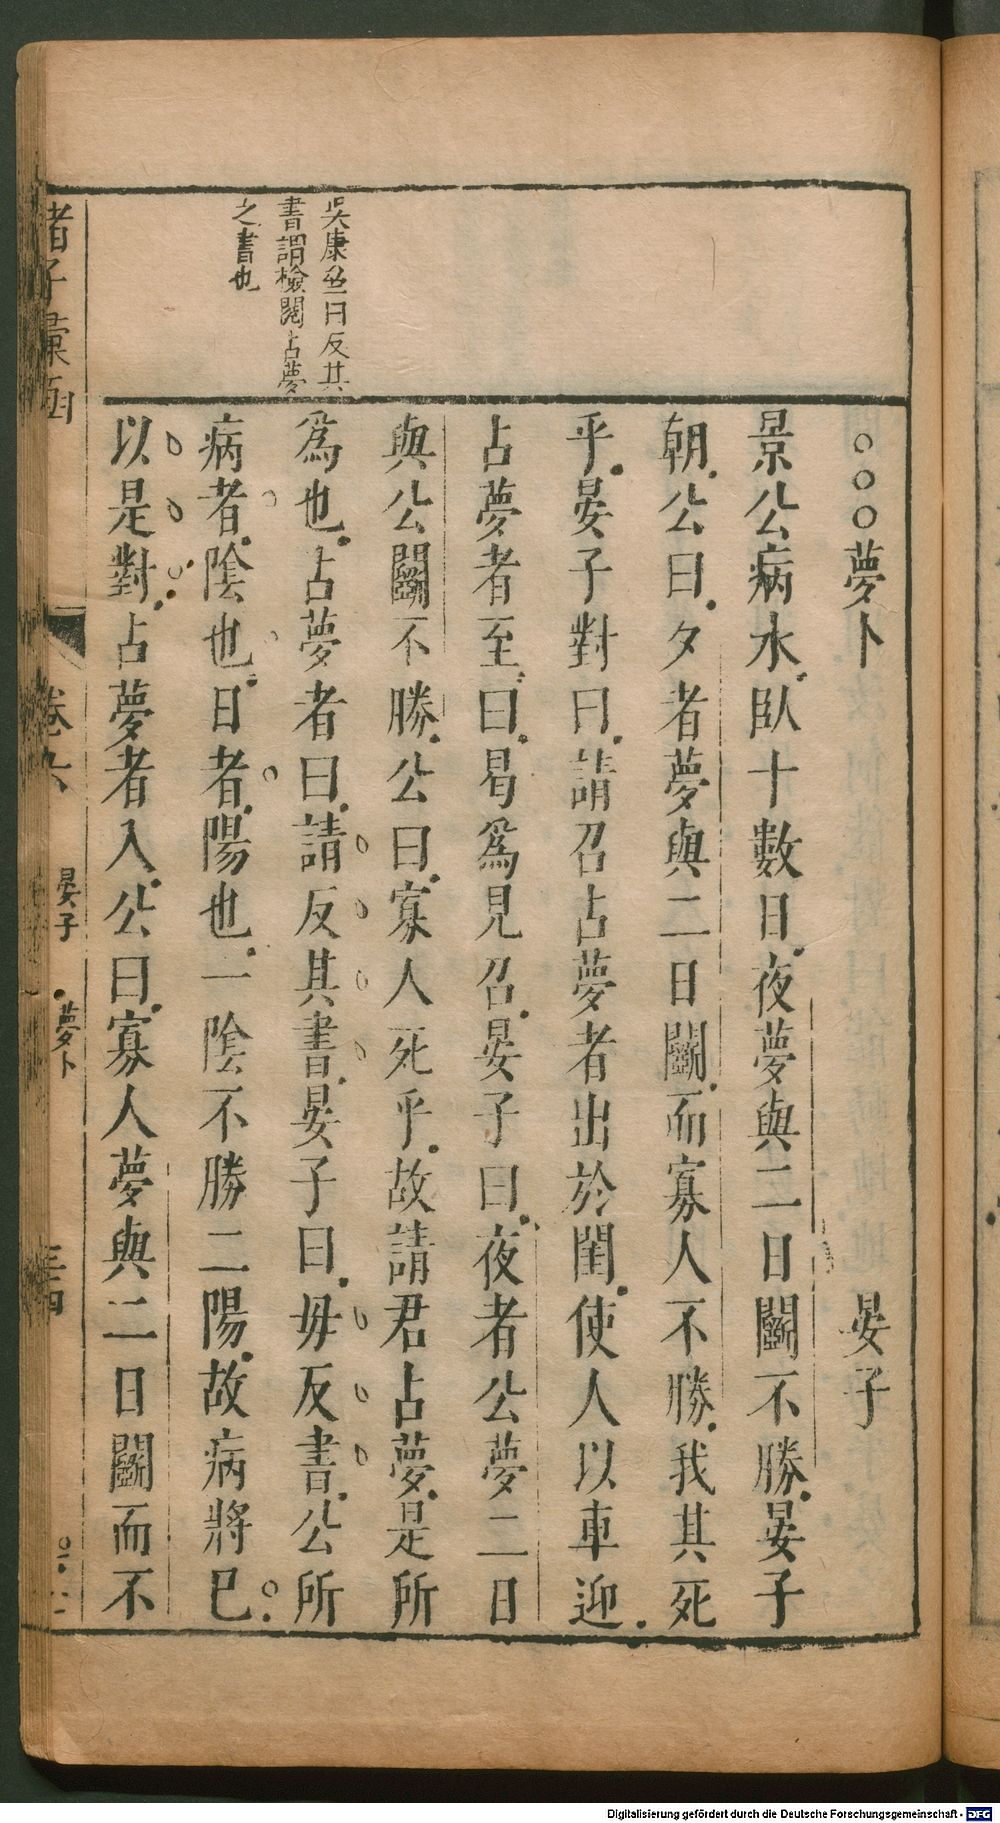 ○○○夢卜 晏子
景公病水臥十數日夜夢與二日鬬不勝晏子
朝公曰夕者夢與二日鬬而寡人不勝我其死
乎晏子對曰請召占夢者出於閨使人以車迎
占夢者至曰曷爲見召晏子曰夜者公夢二日
與公鬬不勝公曰寡人死乎故請君占夢是所
爲也占夢者曰請反其書晏子曰毋反書公所
病者陰也日者陽也一陰不勝二陽故病將已
以是對占夢者入公曰寡人夢與二日鬬而不
吳康齋曰反其
書謂檢閱占夢
之書也
諸子彙函
卷六
晏子 夢卜
三十四
Digitalisierung gefördert durch die Deutsche Forschungsgemeinschaft - DFG